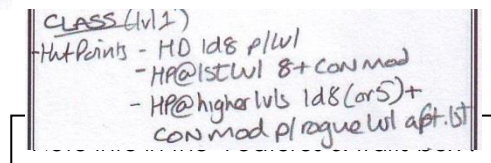 CLASS (lvl 1)
-Hit Points - HD 1d8 p/lvl
- HP@1st lvl 8+CON mod
- HP@higher lvls 1d8(or5)+
CON mod p/rogue lvl aft.1st